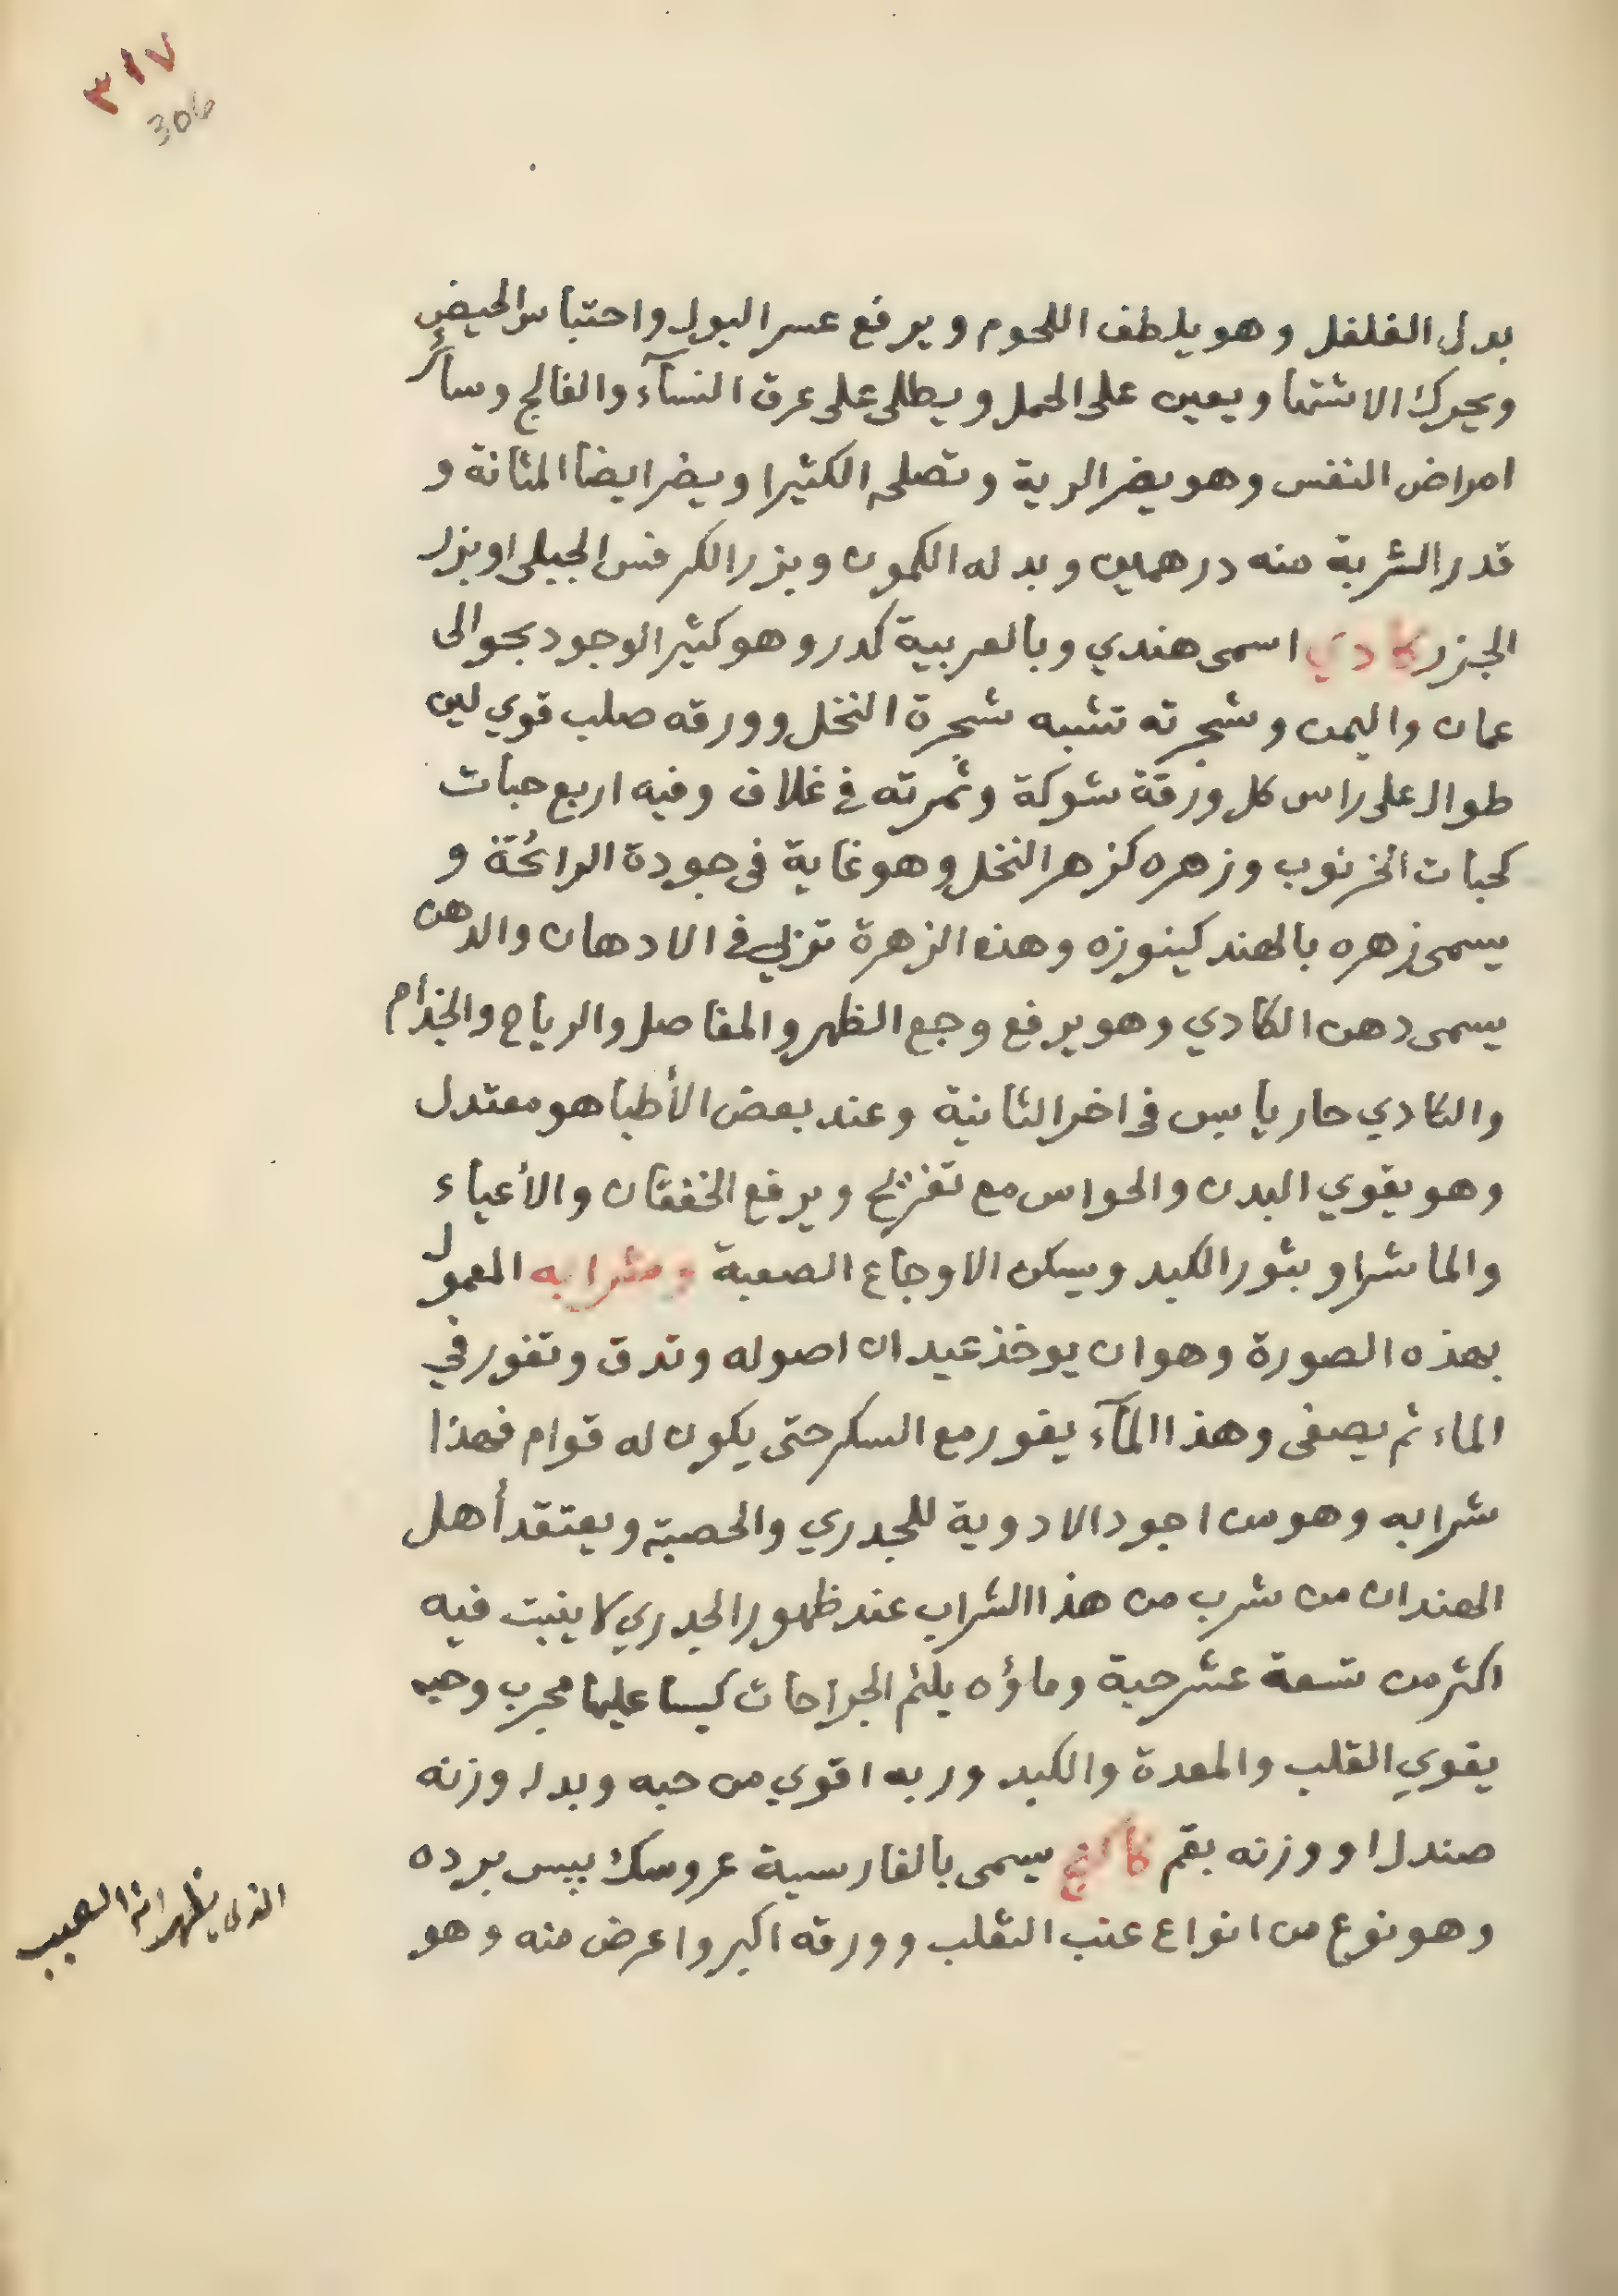 ٣١٧
306
بدل الفلفل وهو يلطف اللحوم ويرفع عسر البول واحتباس الحيض
ويحرك الاشتها ويعين على الحمل ويطلى على عرق النسآء والفالج وسائر
امراض النفس وهو يضر الرية وتصلحه الكثيرا ويضر ايضا المثانة و
قدر الشربة منه درهمين وبدله الكمون وبزر الكرفس الجبلى او بزر
الجزر كادي اسمى هندي وبالعربية كدر وهو كثير الوجود بحوالى
عمان واليمن وشجرته تشبه شجرة النخل وورقه صلب قوي لين
طوال على راس كل ورقة شوكة وثمرته في غلاف وفيه اربع حبات
كحبات الخرنوب وزهره كزهر النخل وهو غاية فى جودة الرائحة و
يسمى زهره بالهند كينوزه وهذه الزهرة تربى في الادهان والدهن
يسمى دهن الكادي وهو يرفع وجع الظهر والمفاصل والرياح والجذام
والكادي حار يابس في اخر الثانية وعند بعض الأطبا هو معتدل
وهو يقوي البدن والحواس مع تفريح ويرفع الخفقان والأعياء
والماشرا وبثور الكبد ويسكن الاوجاع الصعبة وشرابه المعمول
بهذه الصورة وهو ان يوخذ عيدان اصوله وتدق وتفور في
الماء ثم يصفى وهذا المآء يفور مع السكر حتى يكون له قوام فهذا
شرابه وهو من اجود الادوية للجدري والحصبة ويعتقد أهل
الهند ان من شرب من هذا الشراب عند ظهور الجدري لا ينبت فيه
اكثر من تسعة عشر حبة وماؤه يلئم الجراحات كبسا عليها مجرب وحبه
يقوي القلب والمعدة والكبد وربه اقوي من حبه وبدله وزنه
صندل او وزنه بقم كاكنج يسمى بالفارسية عروسك بپس برده
وهو نوع من انواع عنب الثعلب وورقه اكبر واعرض منه وهو
الذى يظهر انه